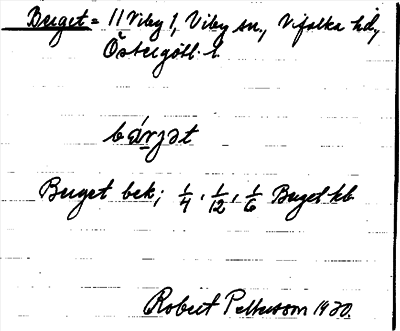 Berget = 11 Viby 1, Viby sn., Vifolka hd,
Östergötl. l.
bárjət
Berget bek; 1/4, 1/12, 1/6 Berget hb
Robert Pettersson 1930.